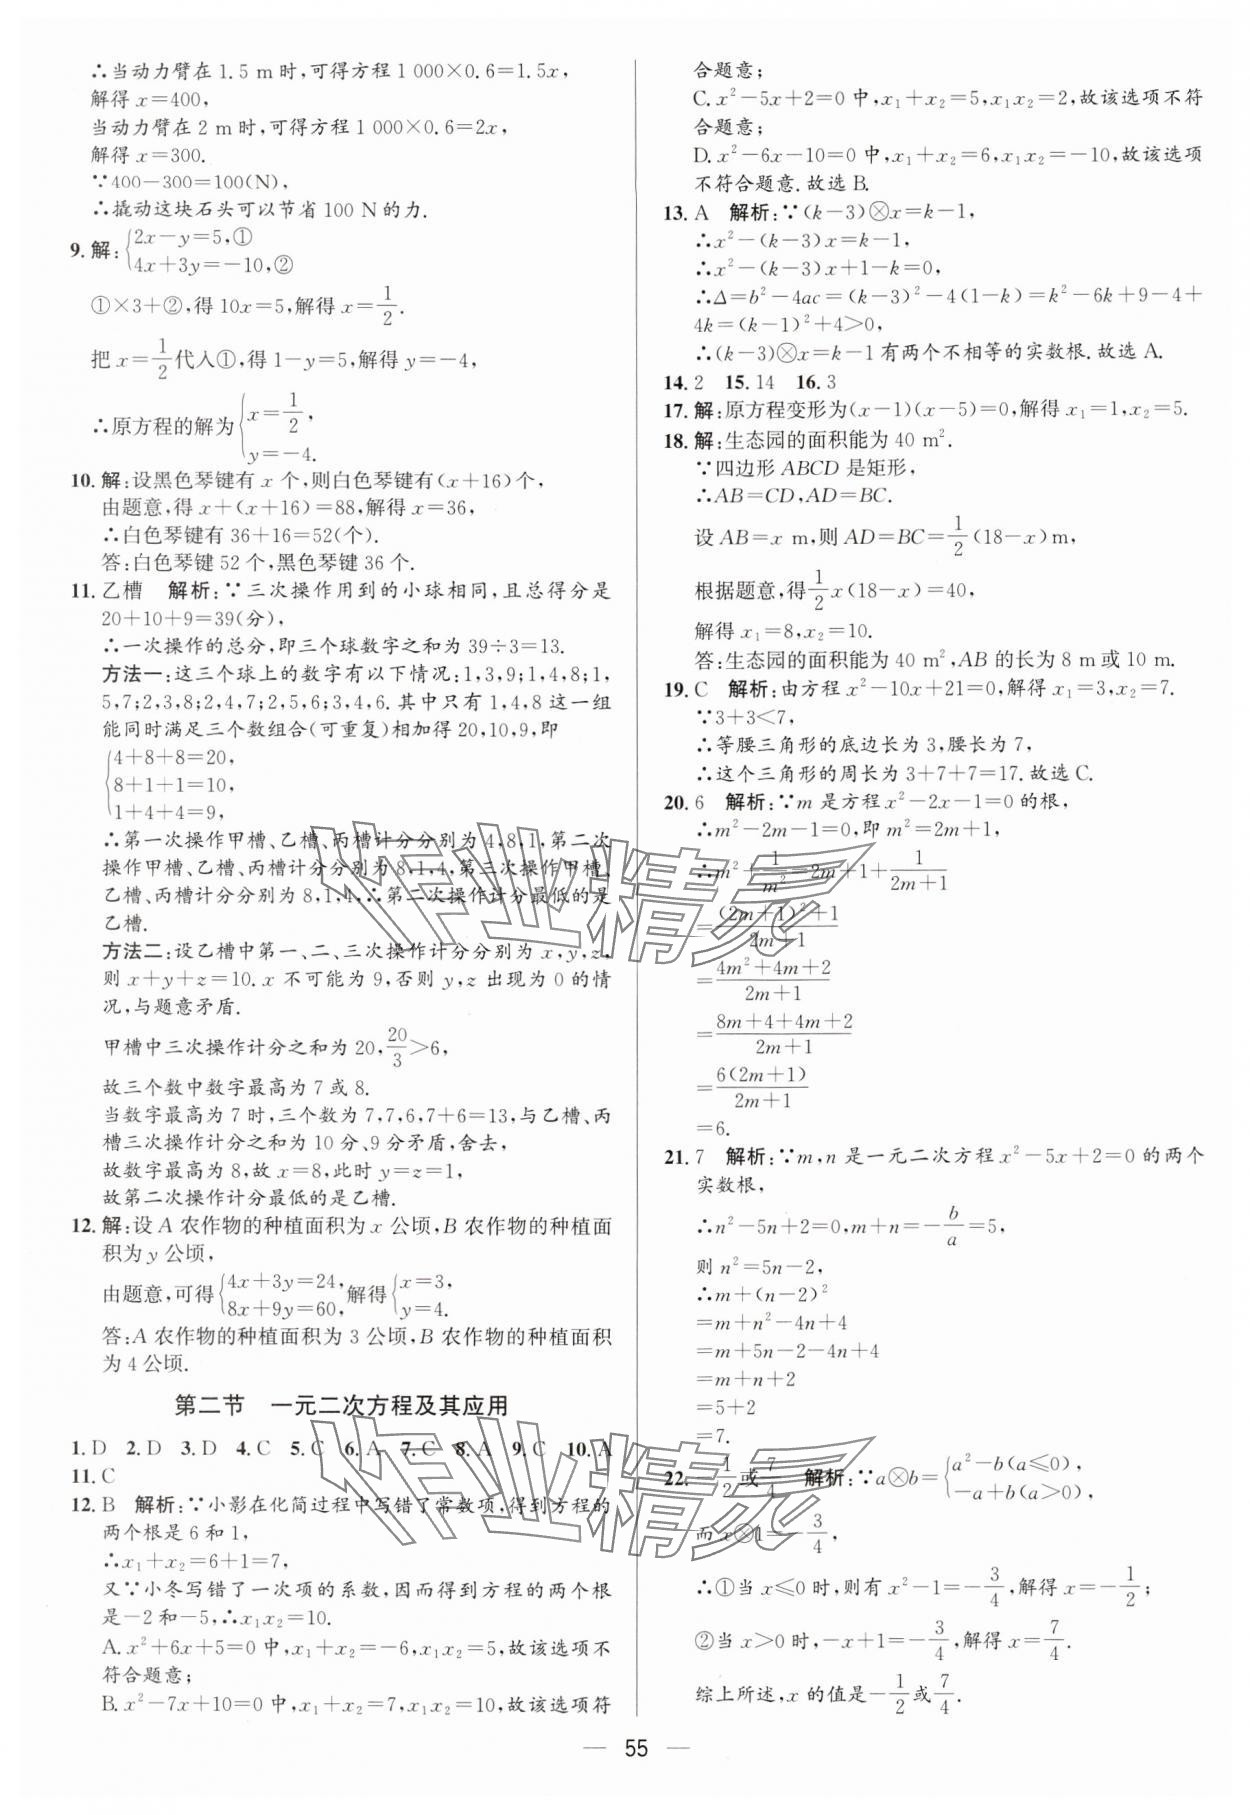 ∴当动力臂在1.5 m时,可得方程1 000×0.6=1.5x,
解得x=400,
当动力臂在2 m时,可得方程1 000×0.6=2x,
解得x=300.
∵400-300=100(N),
∴撬动这块石头可以节省100 N的力.
9. 解:{2x-y=5,①
4x+3y=-10,②
①×3+②,得10x=5,解得x=1/2.
把x=1/2代入①,得1-y=5,解得y=-4,
∴原方程的解为{x=1/2,
y=-4.
10. 解:设黑色琴键有x个,则白色琴键有(x+16)个,
由题意,得x+(x+16)=88,解得x=36,
∴白色琴键有36+16=52(个).
答:白色琴键52个,黑色琴键36个.
11. 乙槽 解析:∵三次操作用到的小球相同,且总得分是
20+10+9=39(分),
∴一次操作的总分,即三个球数字之和为39÷3=13.
方法一:这三个球上的数字有以下情况:1,3,9;1,4,8;1,
5,7;2,3,8;2,4,7;2,5,6;3,4,6.其中只有1,4,8这一组
能同时满足三个数组合(可重复)相加得20,10,9,即
{4+8+8=20,
8+1+1=10,
1+4+4=9,
∴第一次操作甲槽、乙槽、丙槽计分分别为4,8,1,第二次
操作甲槽、乙槽、丙槽计分分别为8,1,4,第三次操作甲槽、
乙槽、丙槽计分分别为8,1,4,∴第二次操作计分最低的是
乙槽.
方法二:设乙槽中第一、二、三次操作计分分别为x,y,z,
则x+y+z=10.x不可能为9,否则y,z出现为0的情
况,与题意矛盾.
甲槽中三次操作计分之和为20,20/3>6,
故三个数中数字最高为7或8.
当数字最高为7时,三个数为7,7,6,7+6=13,与乙槽、丙
槽三次操作计分之和为10分、9分矛盾,舍去,
故数字最高为8,故x=8,此时y=z=1,
故第二次操作计分最低的是乙槽.
12. 解:设A农作物的种植面积为x公顷,B农作物的种植面
积为y公顷,
由题意,可得{4x+3y=24,解得{x=3,
8x+9y=60,y=4.
答:A农作物的种植面积为3公顷,B农作物的种植面积
为4公顷.
第二节 一元二次方程及其应用
1. D 2. D 3. D 4. C 5. C 6. A 7. C 8. A 9. C 10. A
11. C
12. B 解析:∵小影在化简过程中写错了常数项,得到方程的
两个根是6和1,
∴x₁+x₂=6+1=7,
又∵小冬写错了一次项的系数,因而得到方程的两个根
是-2和-5,∴x₁x₂=10.
A. x²+6x+5=0中,x₁+x₂=-6,x₁x₂=5,故该选项不
符合题意;
B. x²-7x+10=0中,x₁+x₂=7,x₁x₂=10,故该选项符
合题意;
C. x²-5x+2=0中,x₁+x₂=5,x₁x₂=2,故该选项不符
合题意;
D. x²-6x-10=0中,x₁+x₂=6,x₁x₂=-10,故该选项
不符合题意.故选B.
13. A 解析:∵(k-3)⊗x=k-1,
∴x²-(k-3)x=k-1,
∴x²-(k-3)x+1-k=0,
∴Δ=b²-4ac=(k-3)²-4(1-k)=k²-6k+9-4+
4k=(k-1)²+4>0,
∴(k-3)⊗x=k-1有两个不相等的实数根.故选A.
14. 2 15. 14 16. 3
17. 解:原方程变形为(x-1)(x-5)=0,解得x₁=1,x₂=5.
18. 解:生态园的面积能为40 m².
∵四边形ABCD是矩形,
∴AB=CD,AD=BC.
设AB=x m,则AD=BC=1/2(18-x)m,
根据题意,得1/2x(18-x)=40,
解得x₁=8,x₂=10.
答:生态园的面积能为40 m²,AB的长为8 m或10 m.
19. C 解析:由方程x²-10x+21=0,解得x₁=3,x₂=7.
∵3+3<7,
∴等腰三角形的底边长为3,腰长为7,
∴这个三角形的周长为3+7+7=17.故选C.
20. 6 解析:∵m是方程x²-2x-1=0的根,
∴m²-2m-1=0,即m²=2m+1,
∴m²+1/m²=2m+1+1/(2m+1)
=((2m+1)²+1)/(2m+1)
=(4m²+4m+2)/(2m+1)
=(8m+4+4m+2)/(2m+1)
=6(2m+1)/(2m+1)
=6.
21. 7 解析:∵m,n是一元二次方程x²-5x+2=0的两个
实数根,
∴n²-5n+2=0,m+n=-b/a=5,
则n²=5n-2,
∴m+(n-2)²
=m+n²-4n+4
=m+5n-2-4n+4
=m+n+2
=5+2
=7.
22. -1/2或7/4 解析:∵a⊗b={a²-b(a≤0),
-a+b(a>0),
而x⊗1=-3/4,
∴①当x≤0时,则有x²-1=-3/4,解得x=-1/2;
②当x>0时,-x+1=-3/4,解得x=7/4.
综上所述,x的值是-1/2或7/4.
作业精灵
作业精灵
— 55 —